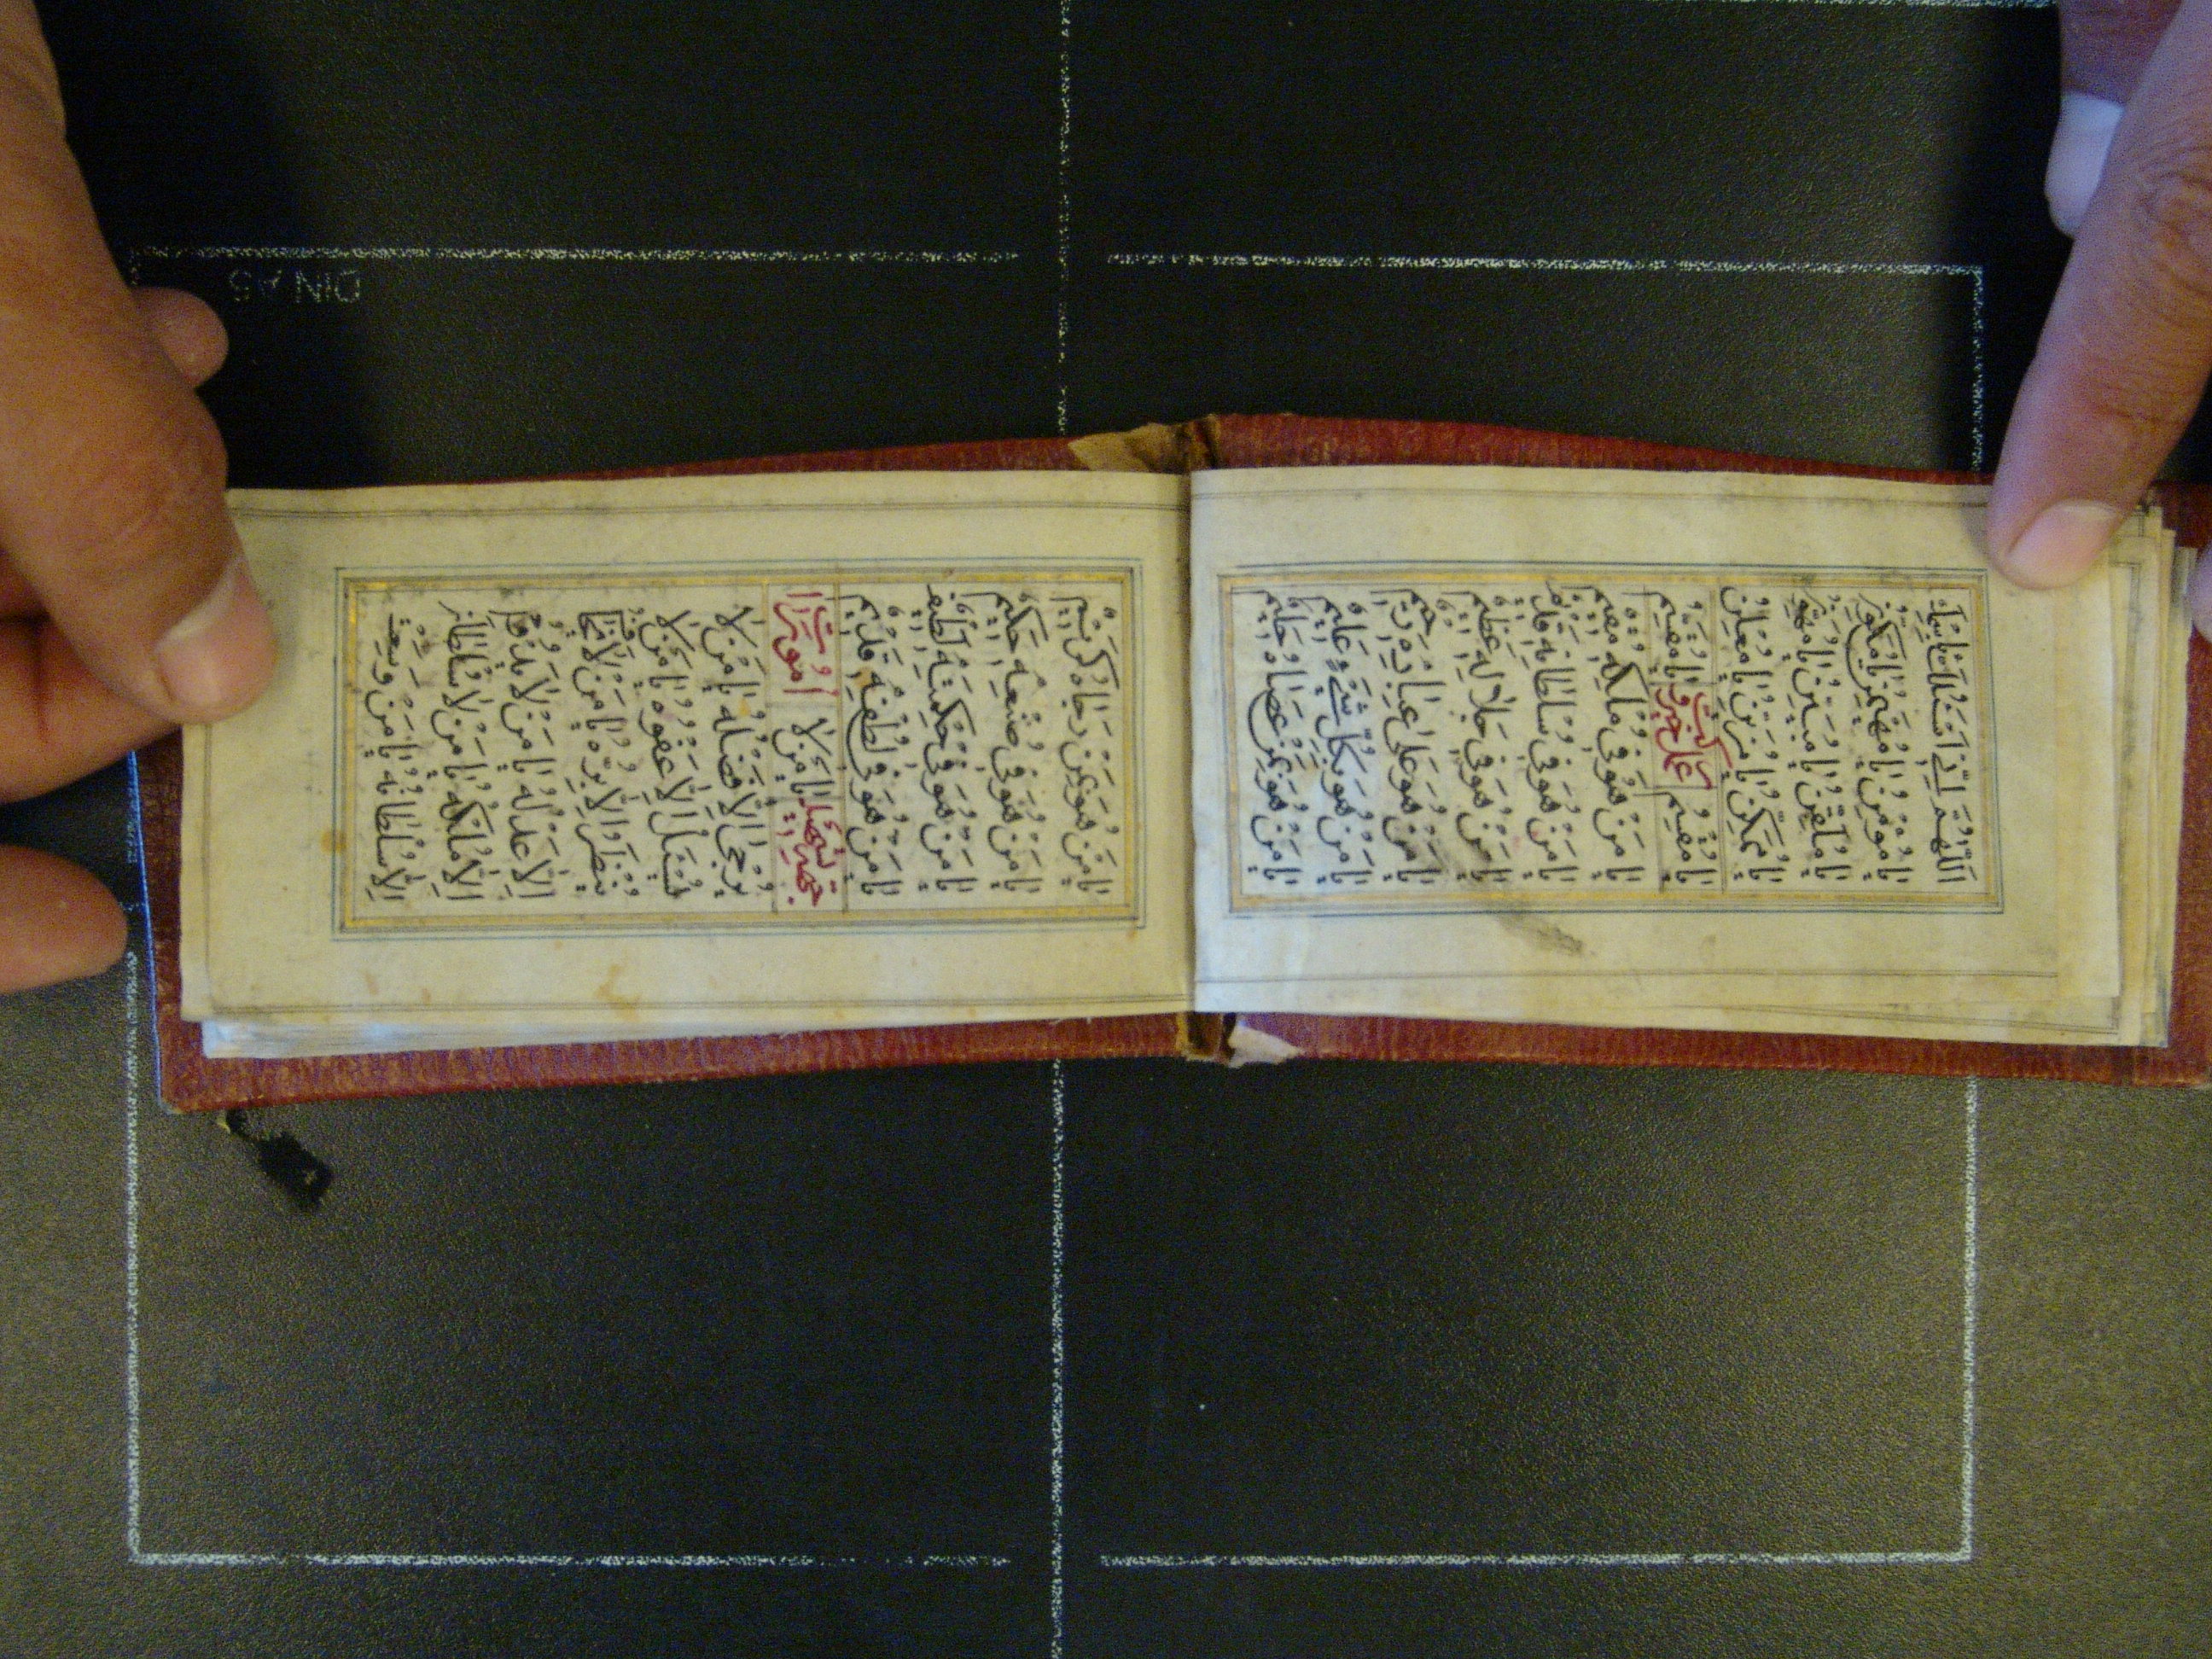 اَللّٰهُمَّ اِنّى اَسْئَلُكَ بِاسْمِكَ
يا مُؤْمِنُ يا مُهَيْمِنُ يا مُكَوِّنُ
يا مُلَقِّنُ يا مُبَيِّنُ يا مُهَوِّنُ
يا مُمَكِّنُ يا مُزَيِّنُ يا مُعْلِنُ
يا مُقَسِّمُ
يا مَنْ هُوَ فى مُلْكِهِ مُقيمٌ
يا مَنْ هُوَ فى سُلْطانِهِ قَديمٌ
يا مَنْ هُوَ فى جَلالِهِ عَظيمٌ
يا مَنْ هُوَ عَلى عِبادِهِ رَحيمٌ
يا مَنْ هُوَ بِكُلِّ شَىْءٍ عَليمٌ
يا مَنْ هُوَ بِمَنْ عَصاهُ حَليمٌ
يا مَنْ هُوَ بِمَنْ رَجاهُ كَريمٌ
يا مَنْ هُوَ فى صُنْعِهِ حَكيمٌ
يا مَنْ هُوَ فى حِكْمَتِهِ لَطيفٌ
يا مَنْ هُوَ فى لُطْفِهِ قَديمٌ
يا مَنْ لا امور
يُرْجى اِلّا فَضْلُهُ يا مَنْ لا
يُسْئَلُ اِلّا عَفْوُهُ يا مَنْ لا
يُنْظَرُ اِلّا بِرُّهُ يا مَنْ لا يُخافُ
اِلّا عَدْلُهُ يا مَنْ لا يَدُومُ
اِلّا مُلْكُهُ يا مَنْ لا سُلْطانَ
اِلّا سُلْطانُهُ يا مَنْ وَسِعَتْ
DIN A5